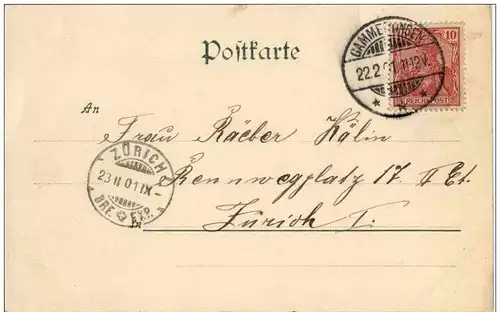 Postkarte
GAMMERTINGEN
22.2.01.11-12V.
10
REICHSPOST
An
Frau Räeber Kälin
ZÜRICH
23 II 01 IX
BRF. EXP.
Rennwegplatz 17 II Et.
in
Zürich I.